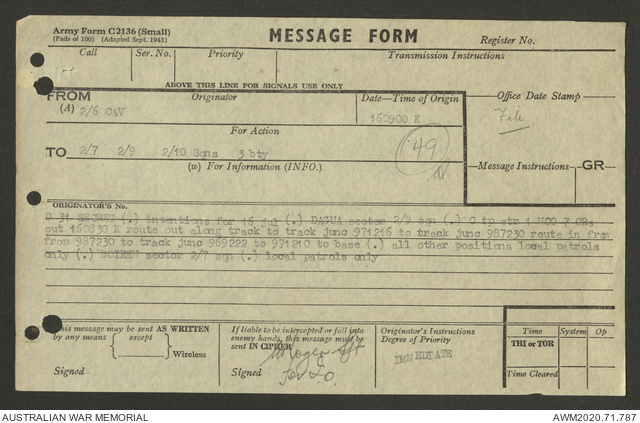 Army Form C2136 (Small)
(Pads of 100) (Adapted Sept. 1943)
MESSAGE FORM
Register No.
Call Ser. No. Priority Transmission Instructions
ABOVE THIS LINE FOR SIGNALS USE ONLY
FROM
(A) 2/6 CAV
Originator
Date—Time of Origin
160900 K
Office Date Stamp
File
For Action
TO 2/7 2/9 2/10 Sqns 3 bty
49
(w) For Information (INFO.)
Message Instructions GR
ORIGINATOR'S No.
O 31 SECRET (.) intentions for 16 jul (.) DAGUA sector 2/9 sqn (.) C tp str 1 NCO 7 ORs
out 160830 K route out along track to track junc 971216 to track junc 987230 route in from
from 987230 to track junc 969222 to 971210 to base (.) all other positions local patrols
only (.) BOIKEN sector 2/7 sqn (.) local patrols only
This message may be sent AS WRITTEN
by any means except
Wireless
Signed
If liable to be intercepted or fall into
enemy hands, this message must be
sent IN CIPHER
Signed
Originator's Instructions
Degree of Priority
IMMEDIATE
Time System Op
THI or TOR
Time Cleared
AUSTRALIAN WAR MEMORIAL AWM2020.71.787